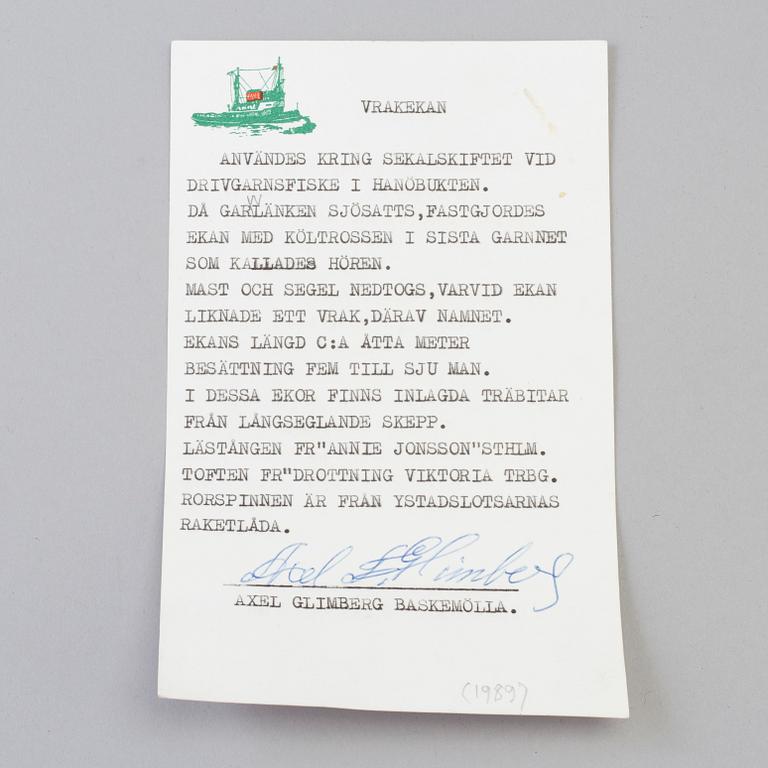 VRAKEKAN
ANVÄNDES KRING SEKALSKIFTET VID
DRIVGARNSFISKE I HANÖBUKTEN.
DÅ GARWLÄNKEN SJÖSATTS,FASTGJORDES
EKAN MED KÖLTROSSEN I SISTA GARNNET
SOM KALLADES HÖREN.
MAST OCH SEGEL NEDTOGS,VARVID EKAN
LIKNADE ETT VRAK,DÄRAV NAMNET.
EKANS LÄNGD C:A ÅTTA METER
BESÄTTNING FEM TILL SJU MAN.
I DESSA EKOR FINNS INLAGDA TRÄBITAR
FRÅN LÅNGSEGLANDE SKEPP.
LÄSTÅNGEN FR"ANNIE JONSSON"STHLM.
TOFTEN FR"DROTTNING VIKTORIA TRBG.
RORSPINNEN ÄR FRÅN YSTADSLOTSARNAS
RAKETLÅDA.
Axel E. Glimberg
AXEL GLIMBERG BASKEMÖLLA.
(1989)